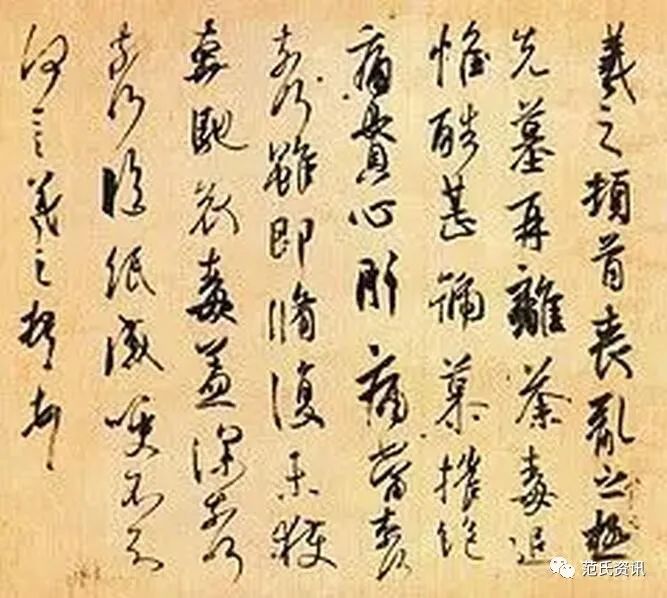 羲之頓首喪亂之極
先墓再離荼毒追
惟酷甚號慕摧絕
痛貫心肝痛當奈何
奈何雖即脩復未獲
奔馳哀毒益深奈何
奈何臨紙感哽不知
何言羲之頓首頓首
范氏资讯